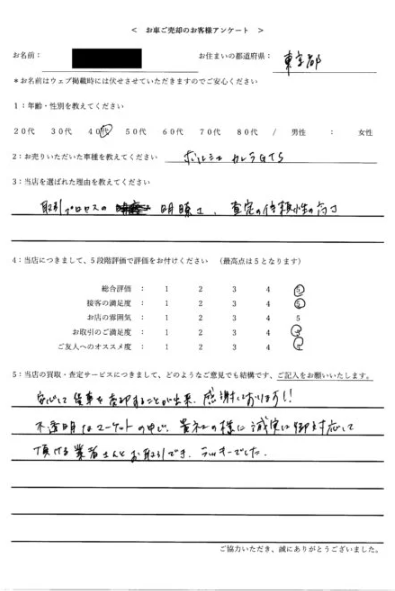 < お車ご売却のお客様アンケート >
お名前： お住まいの都道府県： 東京都
*お名前はウェブ掲載時には伏せさせていただきますのでご安心ください
1：年齢・性別を教えてください
20代 30代 40代 50代 60代 70代 80代 / 男性 ： 女性
2：お売りいただいた車種を教えてください ポルシェ カレラGTS
3：当店を選ばれた理由を教えてください
取引プロセスの 明瞭さ、査定の信頼性の高さ
4：当店につきまして、5段階評価で評価をお付けください （最高点は5となります）
総合評価 ： 1 2 3 4 5
接客の満足度 ： 1 2 3 4 5
お店の雰囲気 ： 1 2 3 4 5
お取引のご満足度 ： 1 2 3 4 5
ご友人へのオススメ度 ： 1 2 3 4 5
5：当店の買取・査定サービスにつきまして、どのようなご意見でも結構です、ご記入をお願いいたします。
安心して愛車を売却することが出来、感謝しております！
不透明なマーケットの中で、貴社の様に誠実に御対応して
頂ける業者さんとお取引でき、ラッキーでした。
ご協力いただき、誠にありがとうございました。